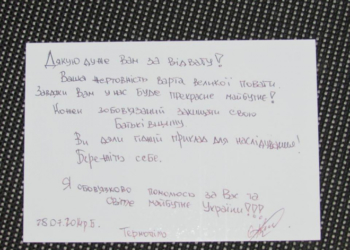 Дякую дуже Вам за відвагу!
Ваша жертовність варта великої поваги.
Завдяки Вам у нас буде прекрасне майбутнє!
Кожен зобов'язаний захищати свою
Батьківщину
Ви дали гідний приклад для наслідування!
Бережіть себе.
Я обов'язково помолюся за Вас та
світле майбутнє України!!!
Тернопіль